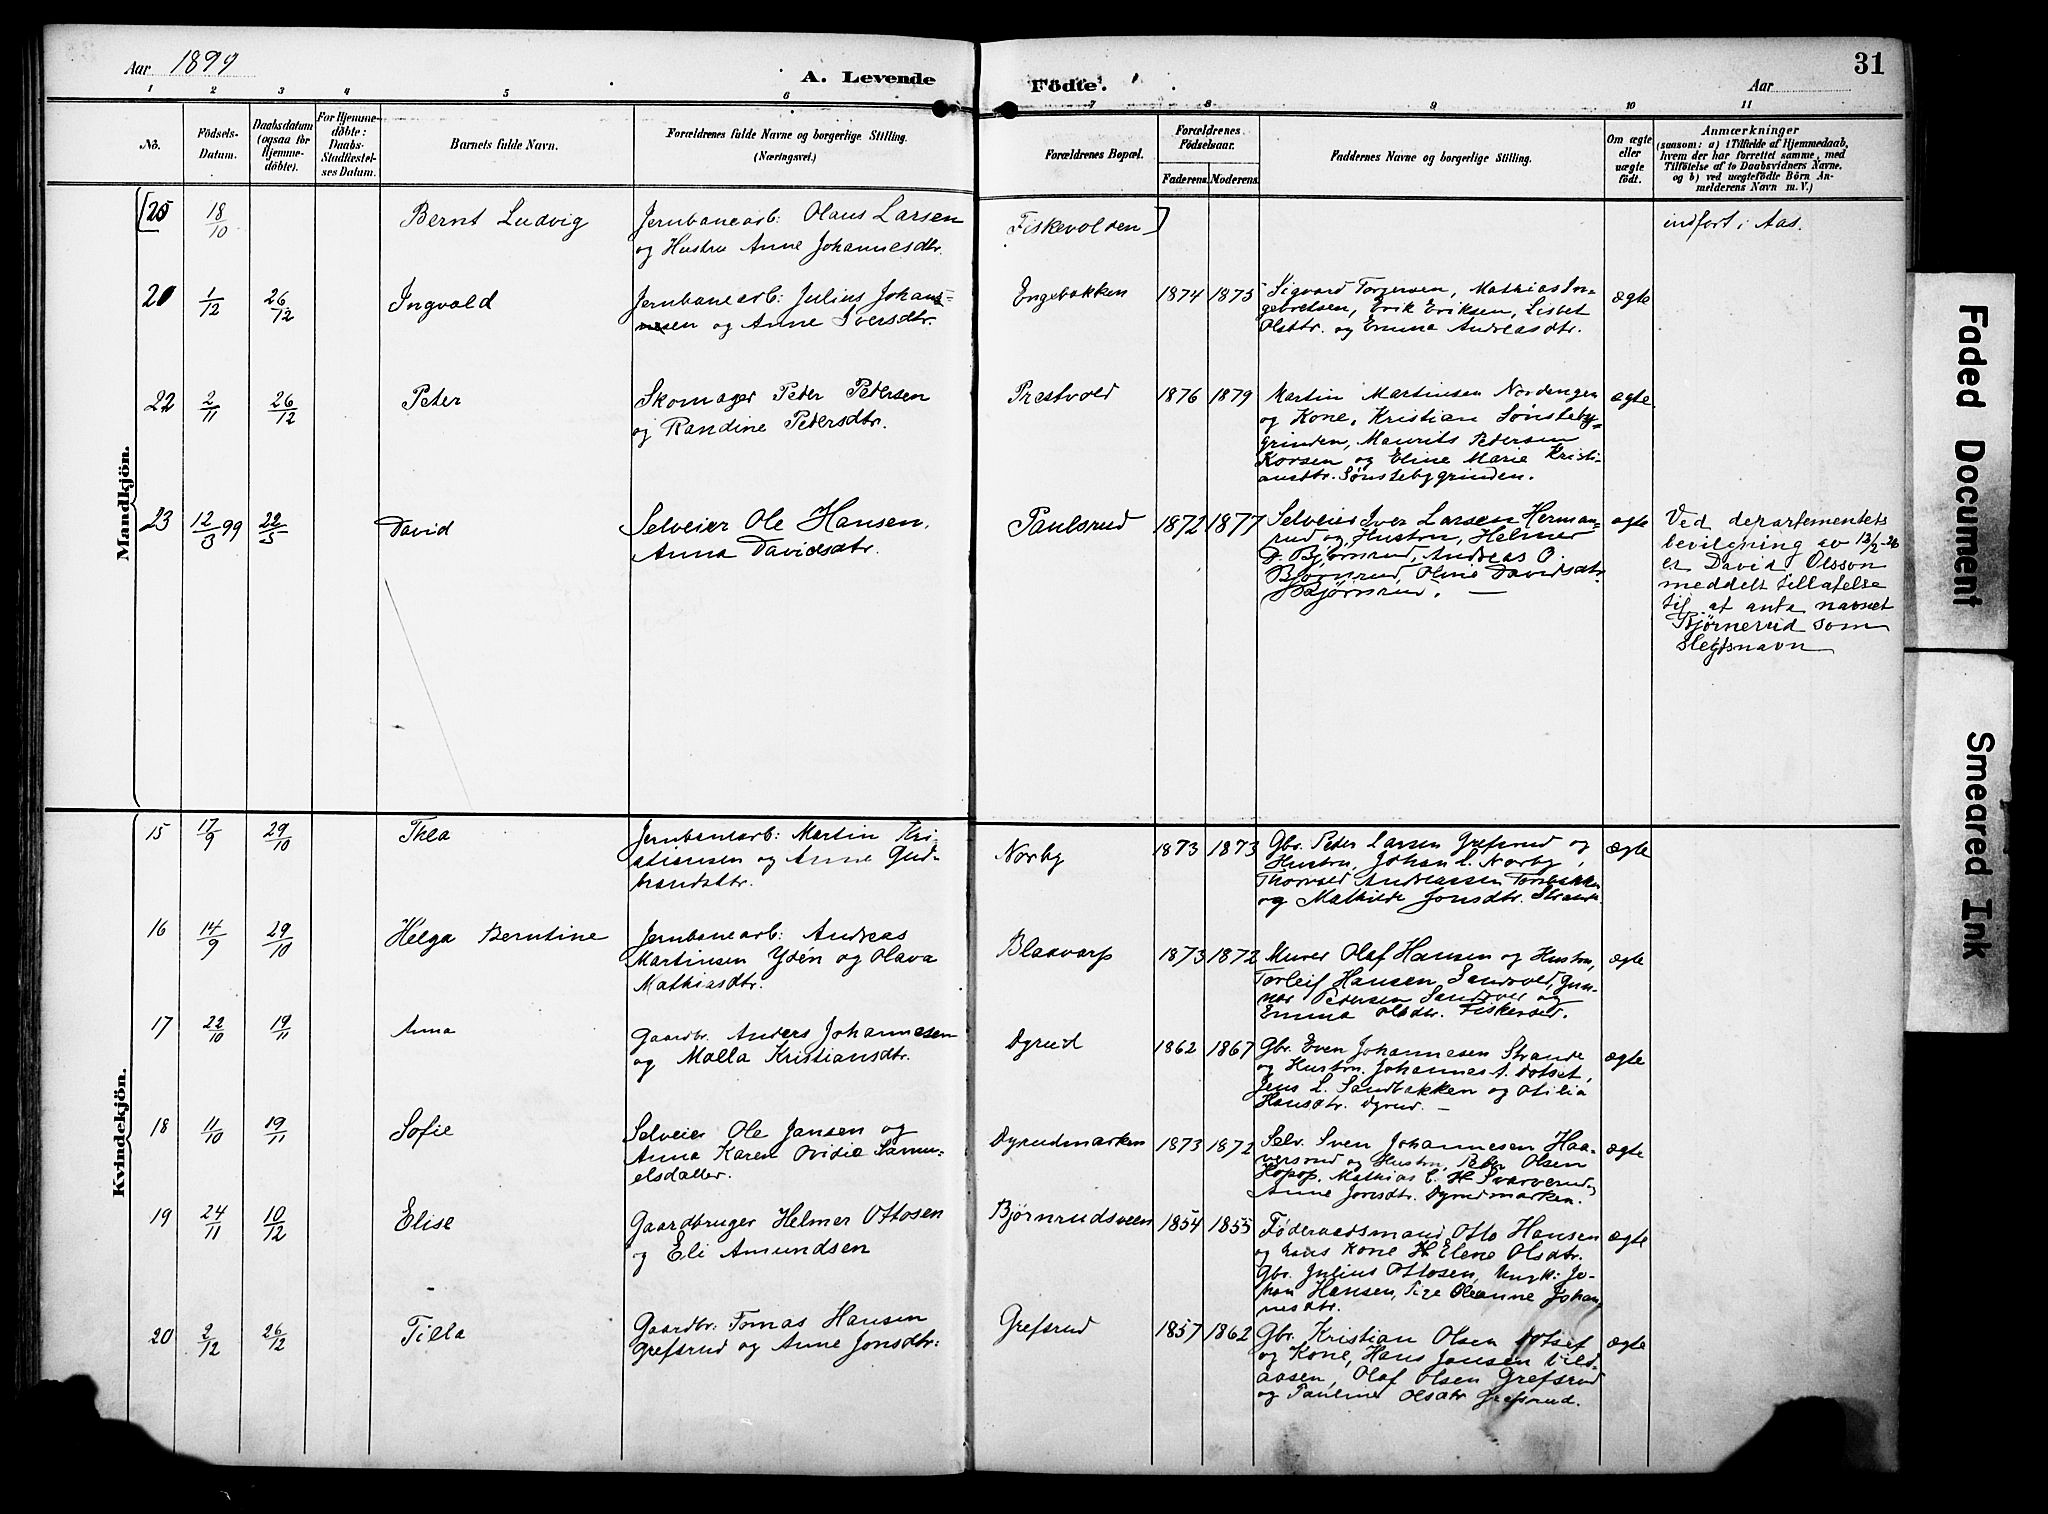 Aar 1899
A. Levende
Fødte.
Aar
31
1 2 3 4 5 6 7 8 9 10 11
No.
Födsels-
Datum.
Daabsdatum
(ogsaa for
Hjemme-
döbte).
For Hjemme-
döbte:
Daabs-
Stadfæstel-
ses Datum.
Barnets fulde Navn.
Forældrenes fulde Navne og borgerlige Stilling.
(Næringsvei.)
Forældrenes Bopæl.
Forældrenes
Födselsaar.
Faderens. Moderens.
Faddernes Navne og borgerlige Stilling.
Om ægte
eller
uægte
født.
Anmærkninger
(saasom: a) i Tilfælde af Hjemmedaab,
hvem der har forrettet samme, med
Tilföielse af to Daabsvidners Navne.
og b) ved uægtefödte Börn An-
melderens Navn m. V.)
Mandkjön.
25 18/10 Bernt Ludvig
Jernbanearb: Olaus Larsen
og Hustru Anne Johannesdtr.
Fiskevolden
indført i Aas.
21 1/12 26/12 Ingvald
Jernbanearb: Julius Johans-
sen og Anne Iversdtr.
Engebakken 1874 1875
Sigvard Torgersen, Mathias In-
gebretsen, Erik Eriksen, Lisbet
Olsdtr. og Emma Andreasdtr.
ægte
22 2/11 26/12 Peter
Skomager Peder Pedersen
og Randine Pedersdtr.
Prestvold 1876 1879
Martin Martinsen Nordengen
og Kone, Kristian Sønsteby-
grinden, Maurits Pedersen
Korsen og Eline Marie Kristi-
ansdtr. Sønstebygrinden.
ægte
23 12/3 99 22/5 David
Selveier Ole Hansen,
Anna Davidsdtr.
Paulsrud 1872 1877
Selveier Iver Larsen Herman-
rud og Hustru, Helmer
O. Bjørnrud, Andreas O.
Bjørnrud, Oline Davidsdtr.
Bjørnsrud. —
ægte
Ved departementets
bevilgning av 12/2-26
er David Olsson
meddelt tillatelse
til at anta navnet
Bjørnerud som
slegtsnavn
Kvindekjön.
15 17/9 29/10 Thea
Jernbanearb: Martin Kri-
stiansen og Anne Gud-
brandsdtr.
Norby 1873 1873
Gbr. Peter Larsen Grefsrud og
Hustru, Johan L. Norby,
Thorvald Andreassen
og Mathilde Jonsdtr. Strande.
ægte
16 14/9 29/10 Helga Berntine
Jernbanearb: Andreas
Martinsen Ydén og Olava
Mathiasdtr.
Blaavarp 1873 1872
Murer Olaf Hansen og Hustru,
Torleif Hansen Sandvold, Gun-
nar Pedersen Sandvold og
Emma Olsdtr. Fiskevold.
ægte
17 22/10 19/11 Anna
Gaardbr. Anders Johannesen
og Malla Kristiansdtr.
Dyrud 1862 1867
Gbr. Even Johannesen Strande
og Hustru, Johannes A. Dotset,
Jens L. Sandbakken og Otilia
Hansdtr. Dyrud. —
ægte
18 11/10 19/11 Sofie
Selveier Ole Jansen og
Anna Karen Ovidie Samu-
elsdatter.
Dyrudmarken 1873 1872
Selv. Sven Johannesen Haa-
versrud og Hustru, Peder Olsen
Hopop, Mathias C. H. Svarverud,
Anne Jonsdtr. Dyrudmarken.
ægte
19 24/11 10/12 Elise
Gaardbruger Helmer Ottosen
og Eli Amundsen
Bjørnrudsveen 1854 1855
Føderaadsmand Otto Hansen
og hans Kone Helene Olsdtr.
Gbr. Julius Ottosen, Ungk: Jo-
han Hansen, Pige Oleanne Johan-
nesdtr.
ægte
20 2/12 26/12 Tilla
Gaardbr: Tomas Hansen
Grefsrud og Anne Jonsdtr:
Grefsrud 1857 1862
Gbr. Kristian Olsen Dotset
og Kone, Hans Jansen Vild-
aasen, Olaf Olsen Grefsrud
og Pauline Olsdtr Grefsrud.
ægte
Faded Document
Smeared Ink